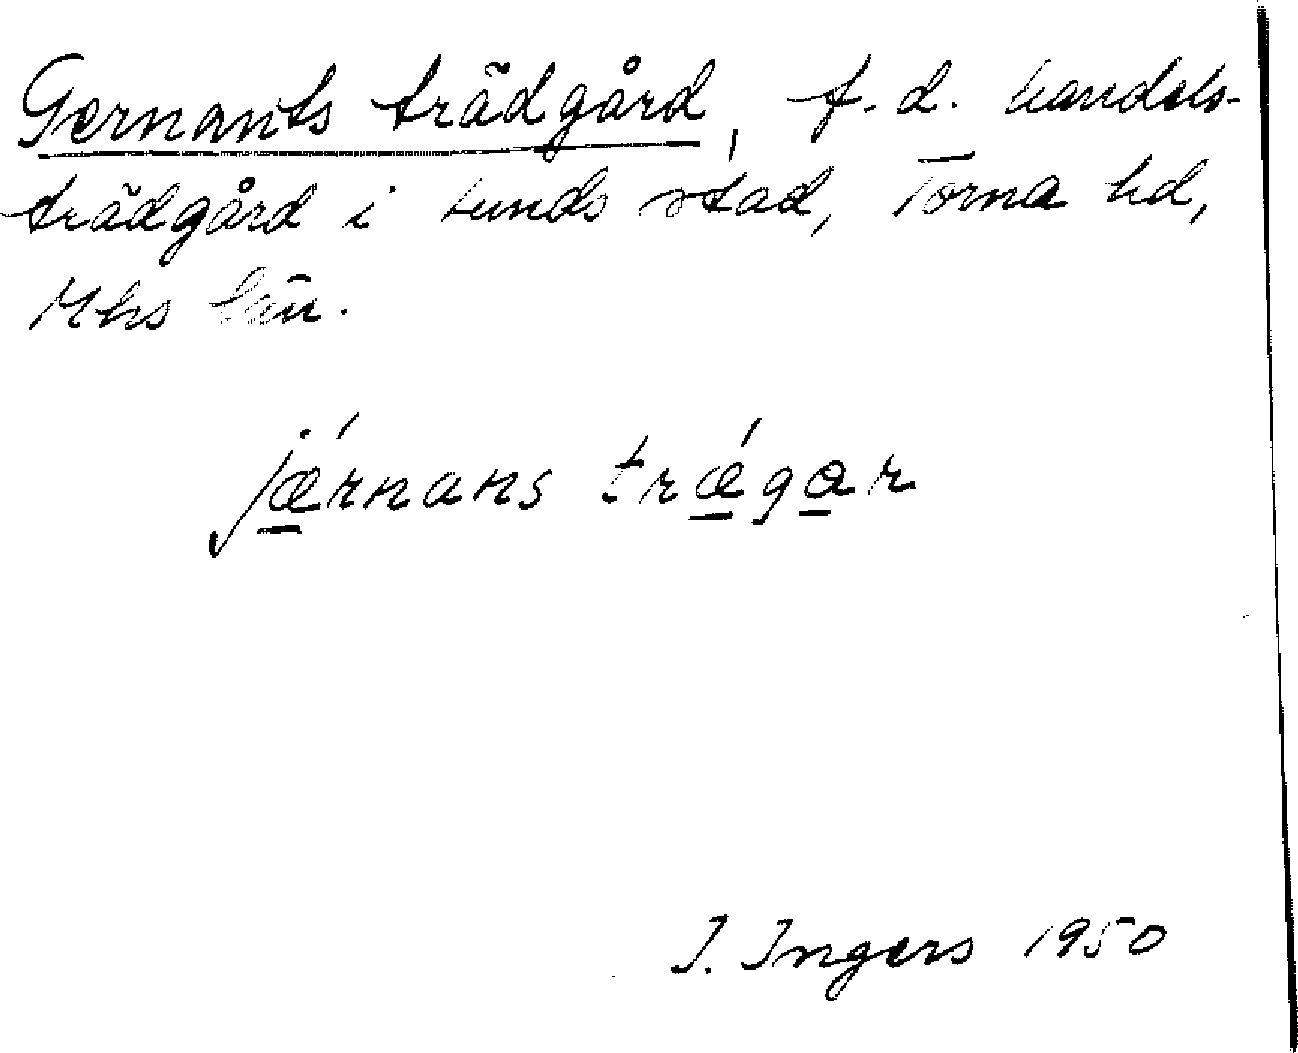 Gernants trädgård, f.d. handels-
trädgård i Lunds stad, Torna hd,
Mhs län.
jǽrnans trǽgar
I. Ingers 1950